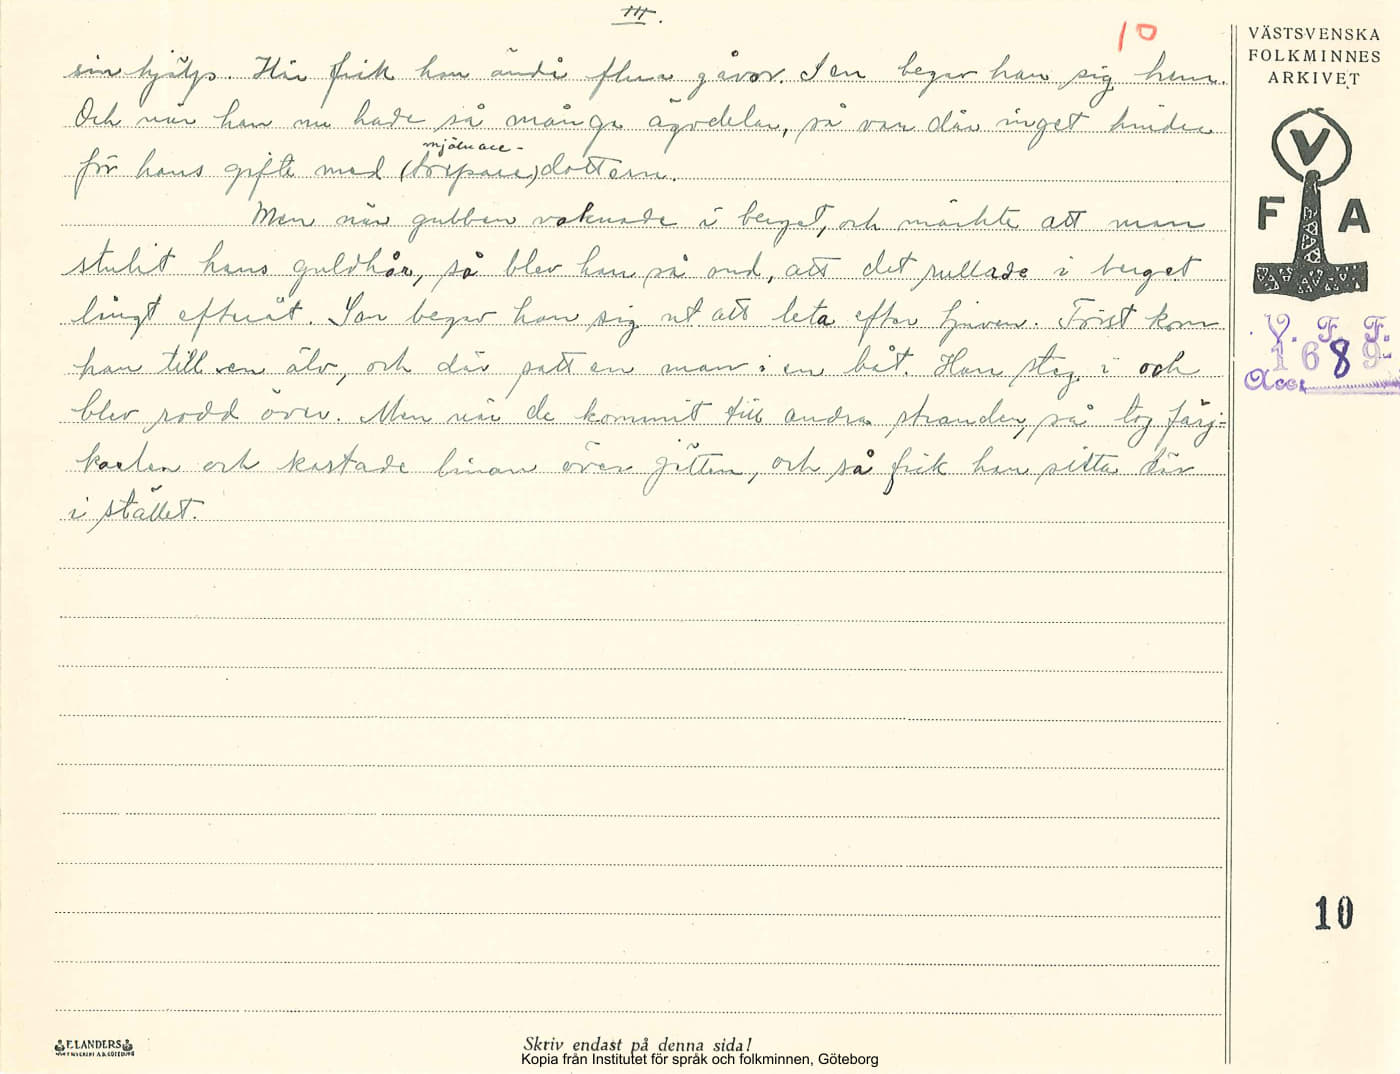 III.
10
sin hjälp. Här fick han ändå flera gåvor. Sen begav han sig hem.
Och när han nu hade så många ägodelar, så var där inget hinder
mjölnare-
för hans gifte med (torpare)dottern.
Men när gubben vaknade i berget, och märkte att man
stulit hans guldhår, så blev han så ond, att det rullade i berget
långt efteråt. Sen begav han sig ut att leta efter tjuven. Först kom
han till en älv, och där satt en man i en båt. Han steg i och
blev rodd över. Men när de kommit till andra stranden, så tog färj-
karlen och kastade linan över jätten, och så fick han sitta där
i stället.
VÄSTSVENSKA
FOLKMINNES
ARKIVET
V
F A
V. F. F.
1689
Acc.
10
ELANDERS
Skriv endast på denna sida!
Kopia från Institutet för språk och folkminnen, Göteborg